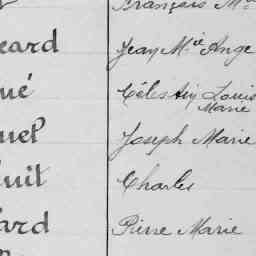 François M
eard Jean M.ie Ange
ué Célestin Louis
Marie
uel Joseph Marie
uit Charles
ard Pierre Marie